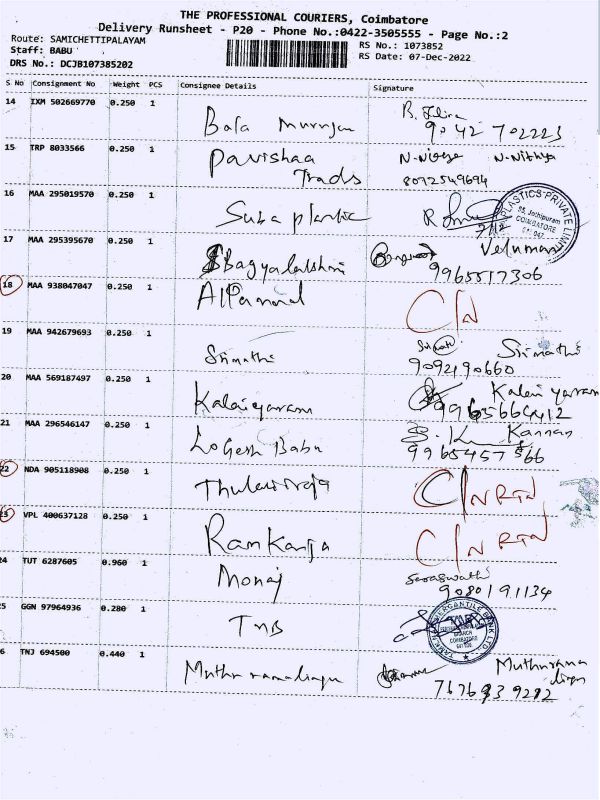 THE PROFESSIONAL COURIERS, Coimbatore
Delivery Runsheet - P20 - Phone No.:0422-3505555 - Page No.:2
Route: SAMICHETTIPALAYAM
RS No.: 1073852
Staff: BABU
RS Date: 07-Dec-2022
DRS No.: DCJB107385202
S No Consignment No Weight PCS Consignee Details Signature
14 IXM 502669770 0.250 1
Bala Murugan
9042702223
15 TRP 8033566 0.250 1
Pavishaa N. Nithya
Trads 8072549694
16 MAA 295019570 0.250 1
Suba plastic
PLASTICS PRIVATE LIMITED
COIMBATORE
17 MAA 295395670 0.250 1
Bagyalakshmi Velumani
9965517306
18 MAA 938047047 0.250 1
C/N
19 MAA 942679693 0.250 1
Srimathi Srimathi
9092190660
20 MAA 569187497 0.250 1
Kalaiyarasan
21 MAA 296546147 0.250 1
Logesh Babu Kannan
22 NDA 905118908 0.250 1
Thulasiraja C/N RTN
23 VPL 400637128 0.250 1
C/N RTN
24 TUT 6287605 0.960 1
Monaj Saraswathi
9080191134
25 GGN 97964936 0.280 1
TMB
MERCANTILE BANK LTD
BRANCH
COIMBATORE
6 TNJ 694500 0.440 1